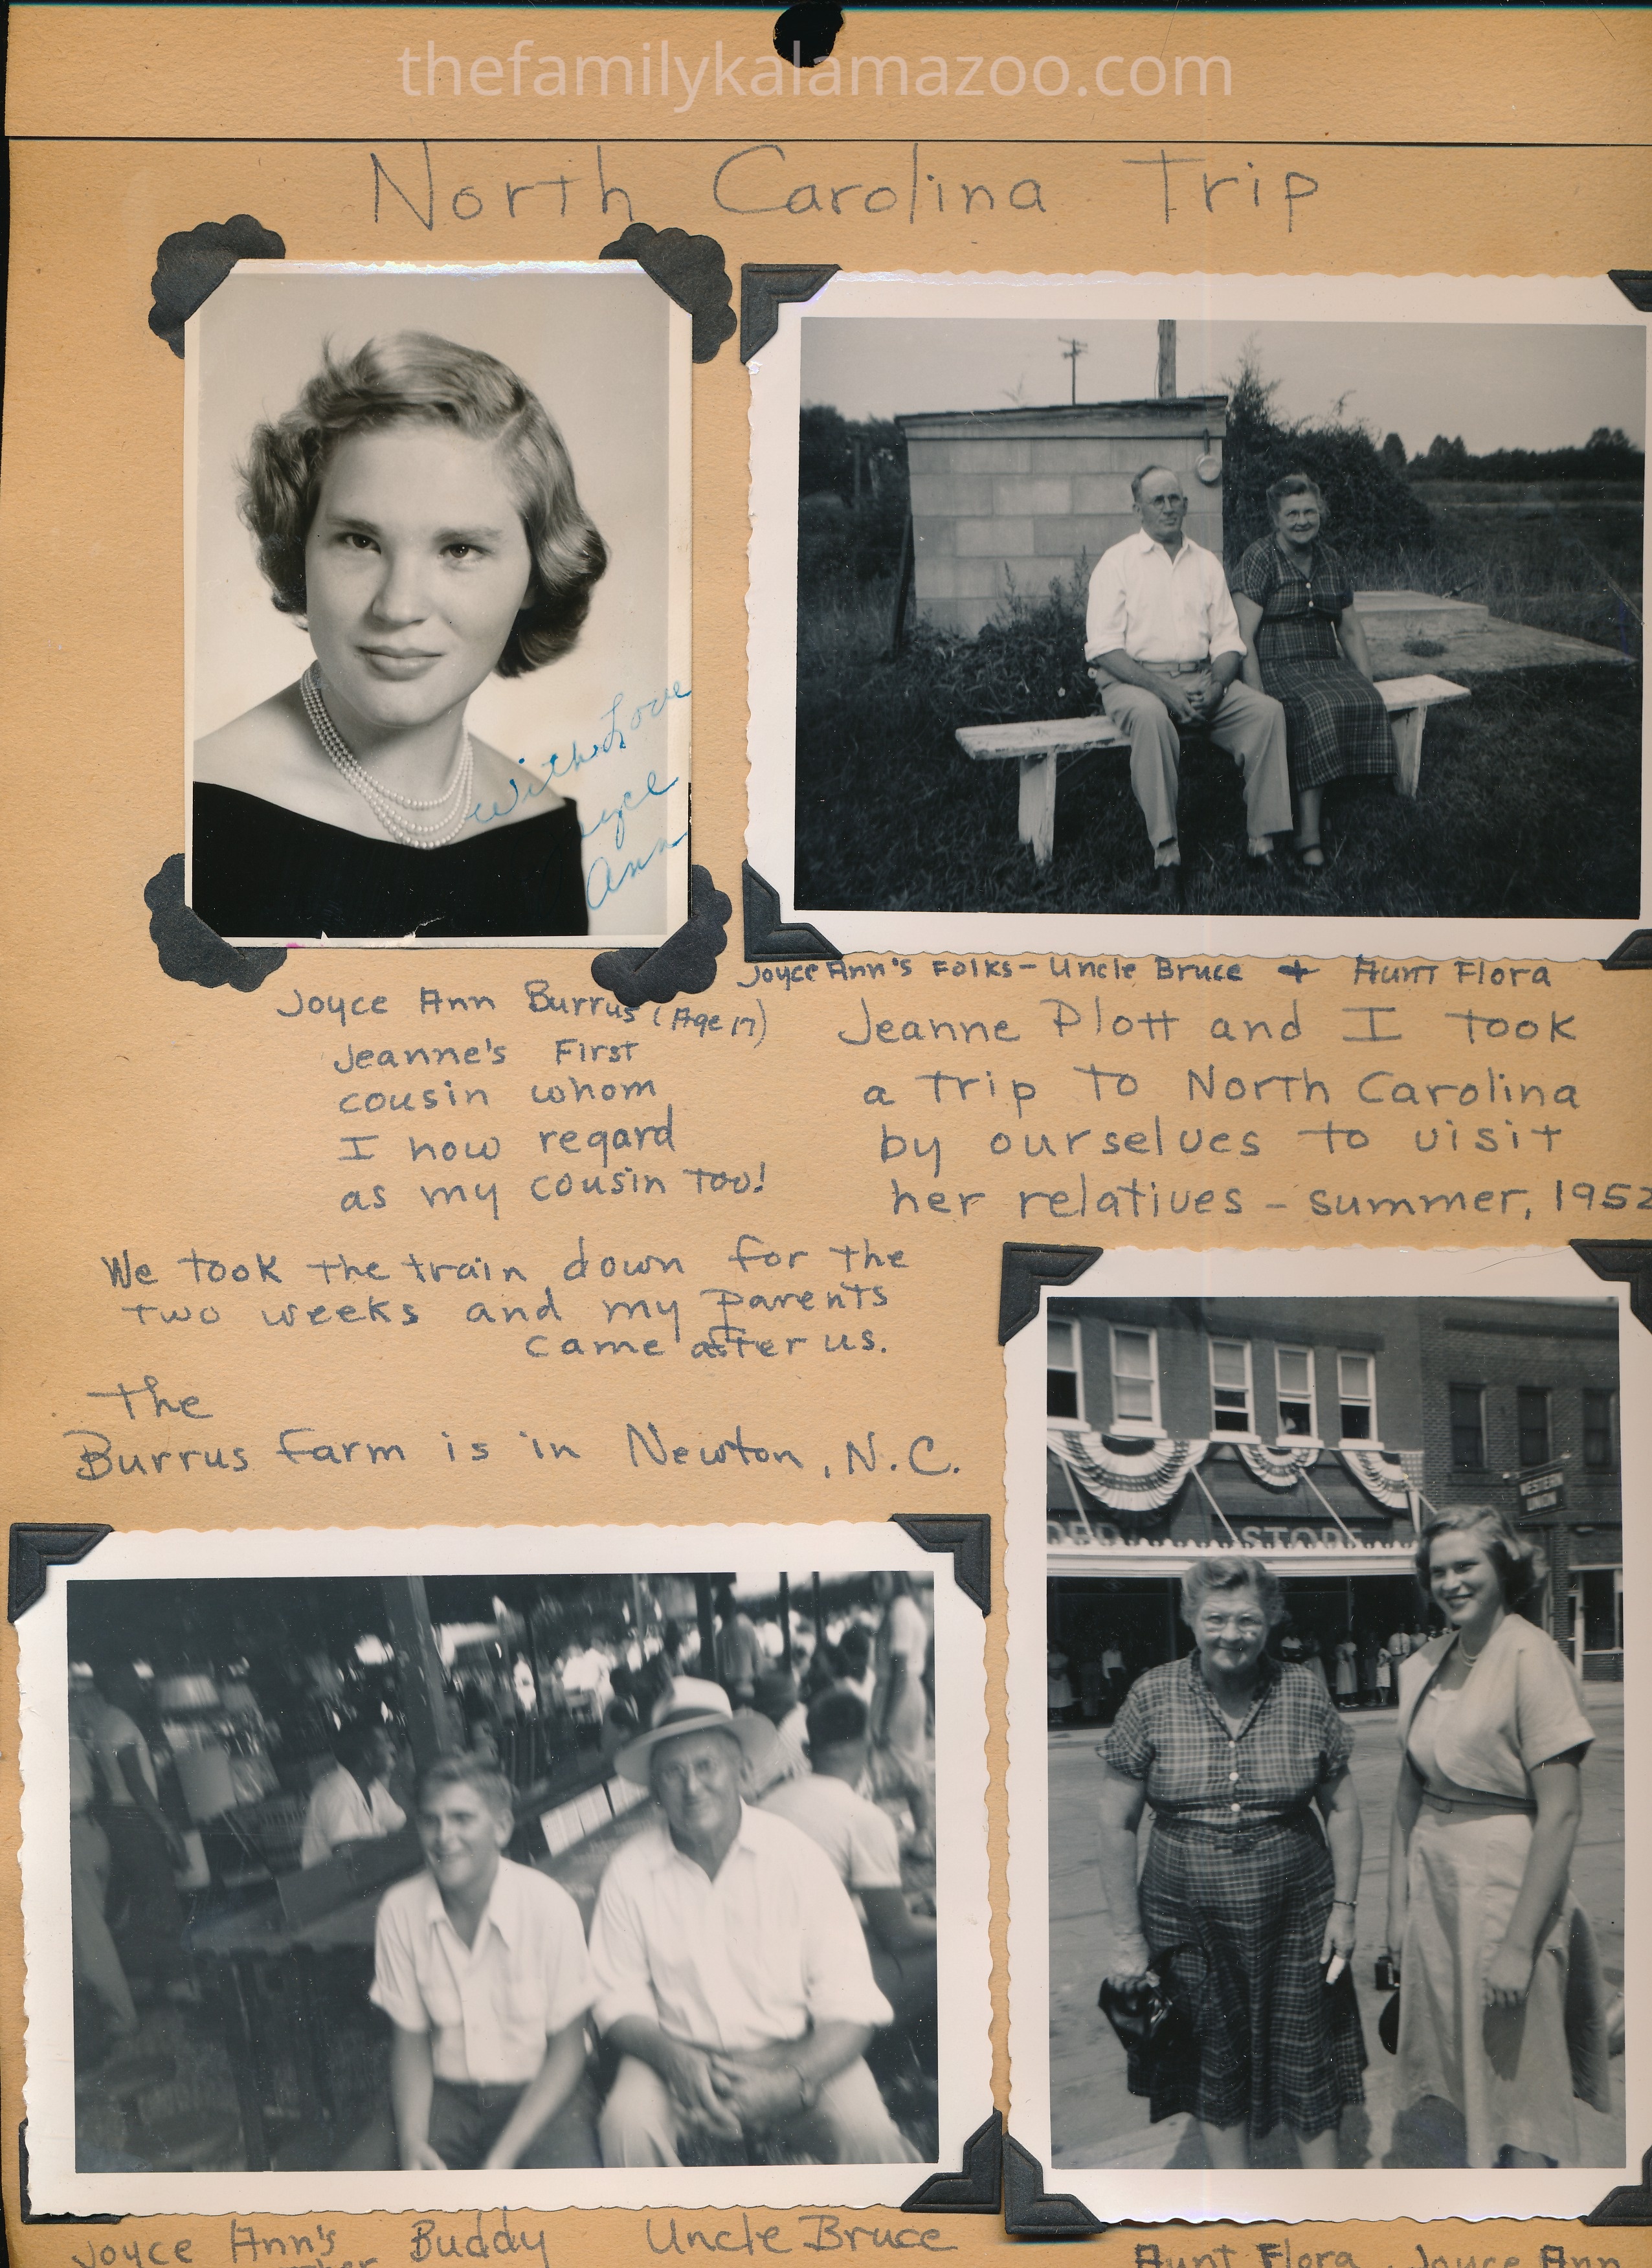 thefamilykalamazoo.com
North Carolina Trip
With Love
Ann
Joyce Ann Burrus (Age 17)
Jeanne's First
cousin whom
I now regard
as my cousin too!
Joyce Ann's Folks - Uncle Bruce + Aunt Flora
Jeanne Plott and I took
a trip to North Carolina
by ourselves to visit
her relatives - summer, 1952
We took the train down for the
two weeks and my parents
came after us.
The
Burrus farm is in Newton, N.C.
WESTERN
UNION
STORE
Joyce Ann's Buddy Uncle Bruce
Aunt Flora, Joyce Ann